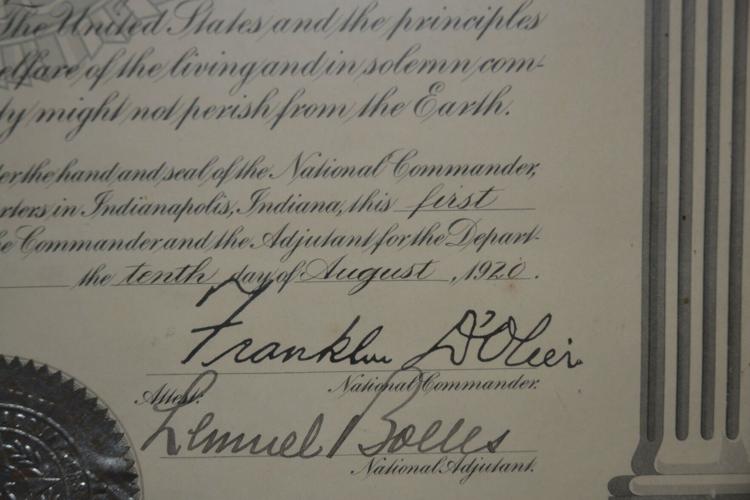 The United States and the principles
elfare of the living and in solemn com-
ty might not perish from the Earth.
der the hand and seal of the National Commander,
rters in Indianapolis, Indiana, this first
he Commander and the Adjutant for the Depart-
the tenth day of August, 1920.
Franklin D'Olier
National Commander.
Attest:
Lemuel Bolles
National Adjutant.